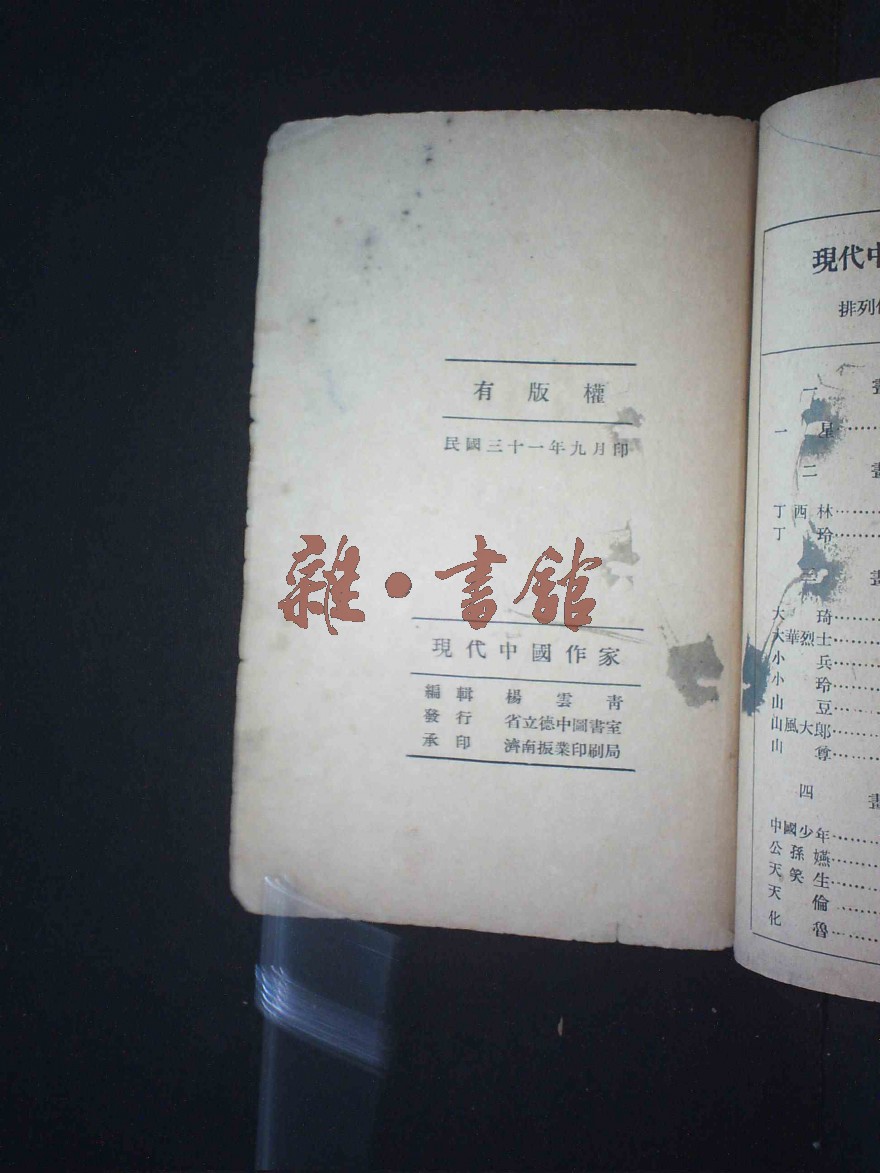 有版權
民國三十一年九月印
雜·書館
現代中國作家
編輯 楊雲青
發行 省立德中圖書室
承印 濟南振業印刷局
現代中
排列
一
一星……
二 畫
丁西林……
丁玲……
三 畫
大琦……
大華烈士……
小兵……
小玲……
山豆……
山風大郎……
山尊……
四 畫
中國少年……
公孫嬿……
天笑生……
天倫……
化魯……